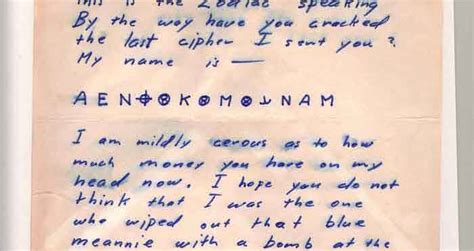 This is the Zodiac speaking
By the way have you cracked
the last cipher I sent you?
My name is —
A E N ⌖ ⊗ K ⊗ M ⊗ ⅃ N A M
I am mildly cerous as to how
much money you have on my
head now. I hope you do not
think that I was the one
who wiped out that blue
meannie with a bomb at the